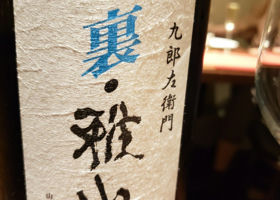 九郎左衛門
裏・雅山
山